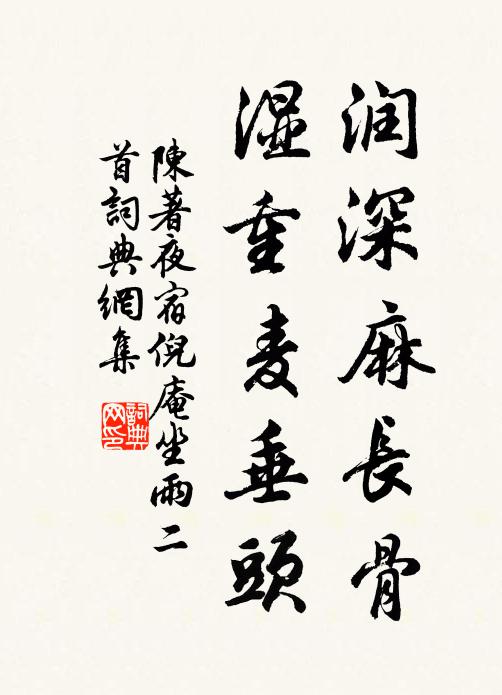 润深麻長骨
湿重麦垂頭
陳著夜宿倪庵坐雨二
首詞典網集
詞典
网印